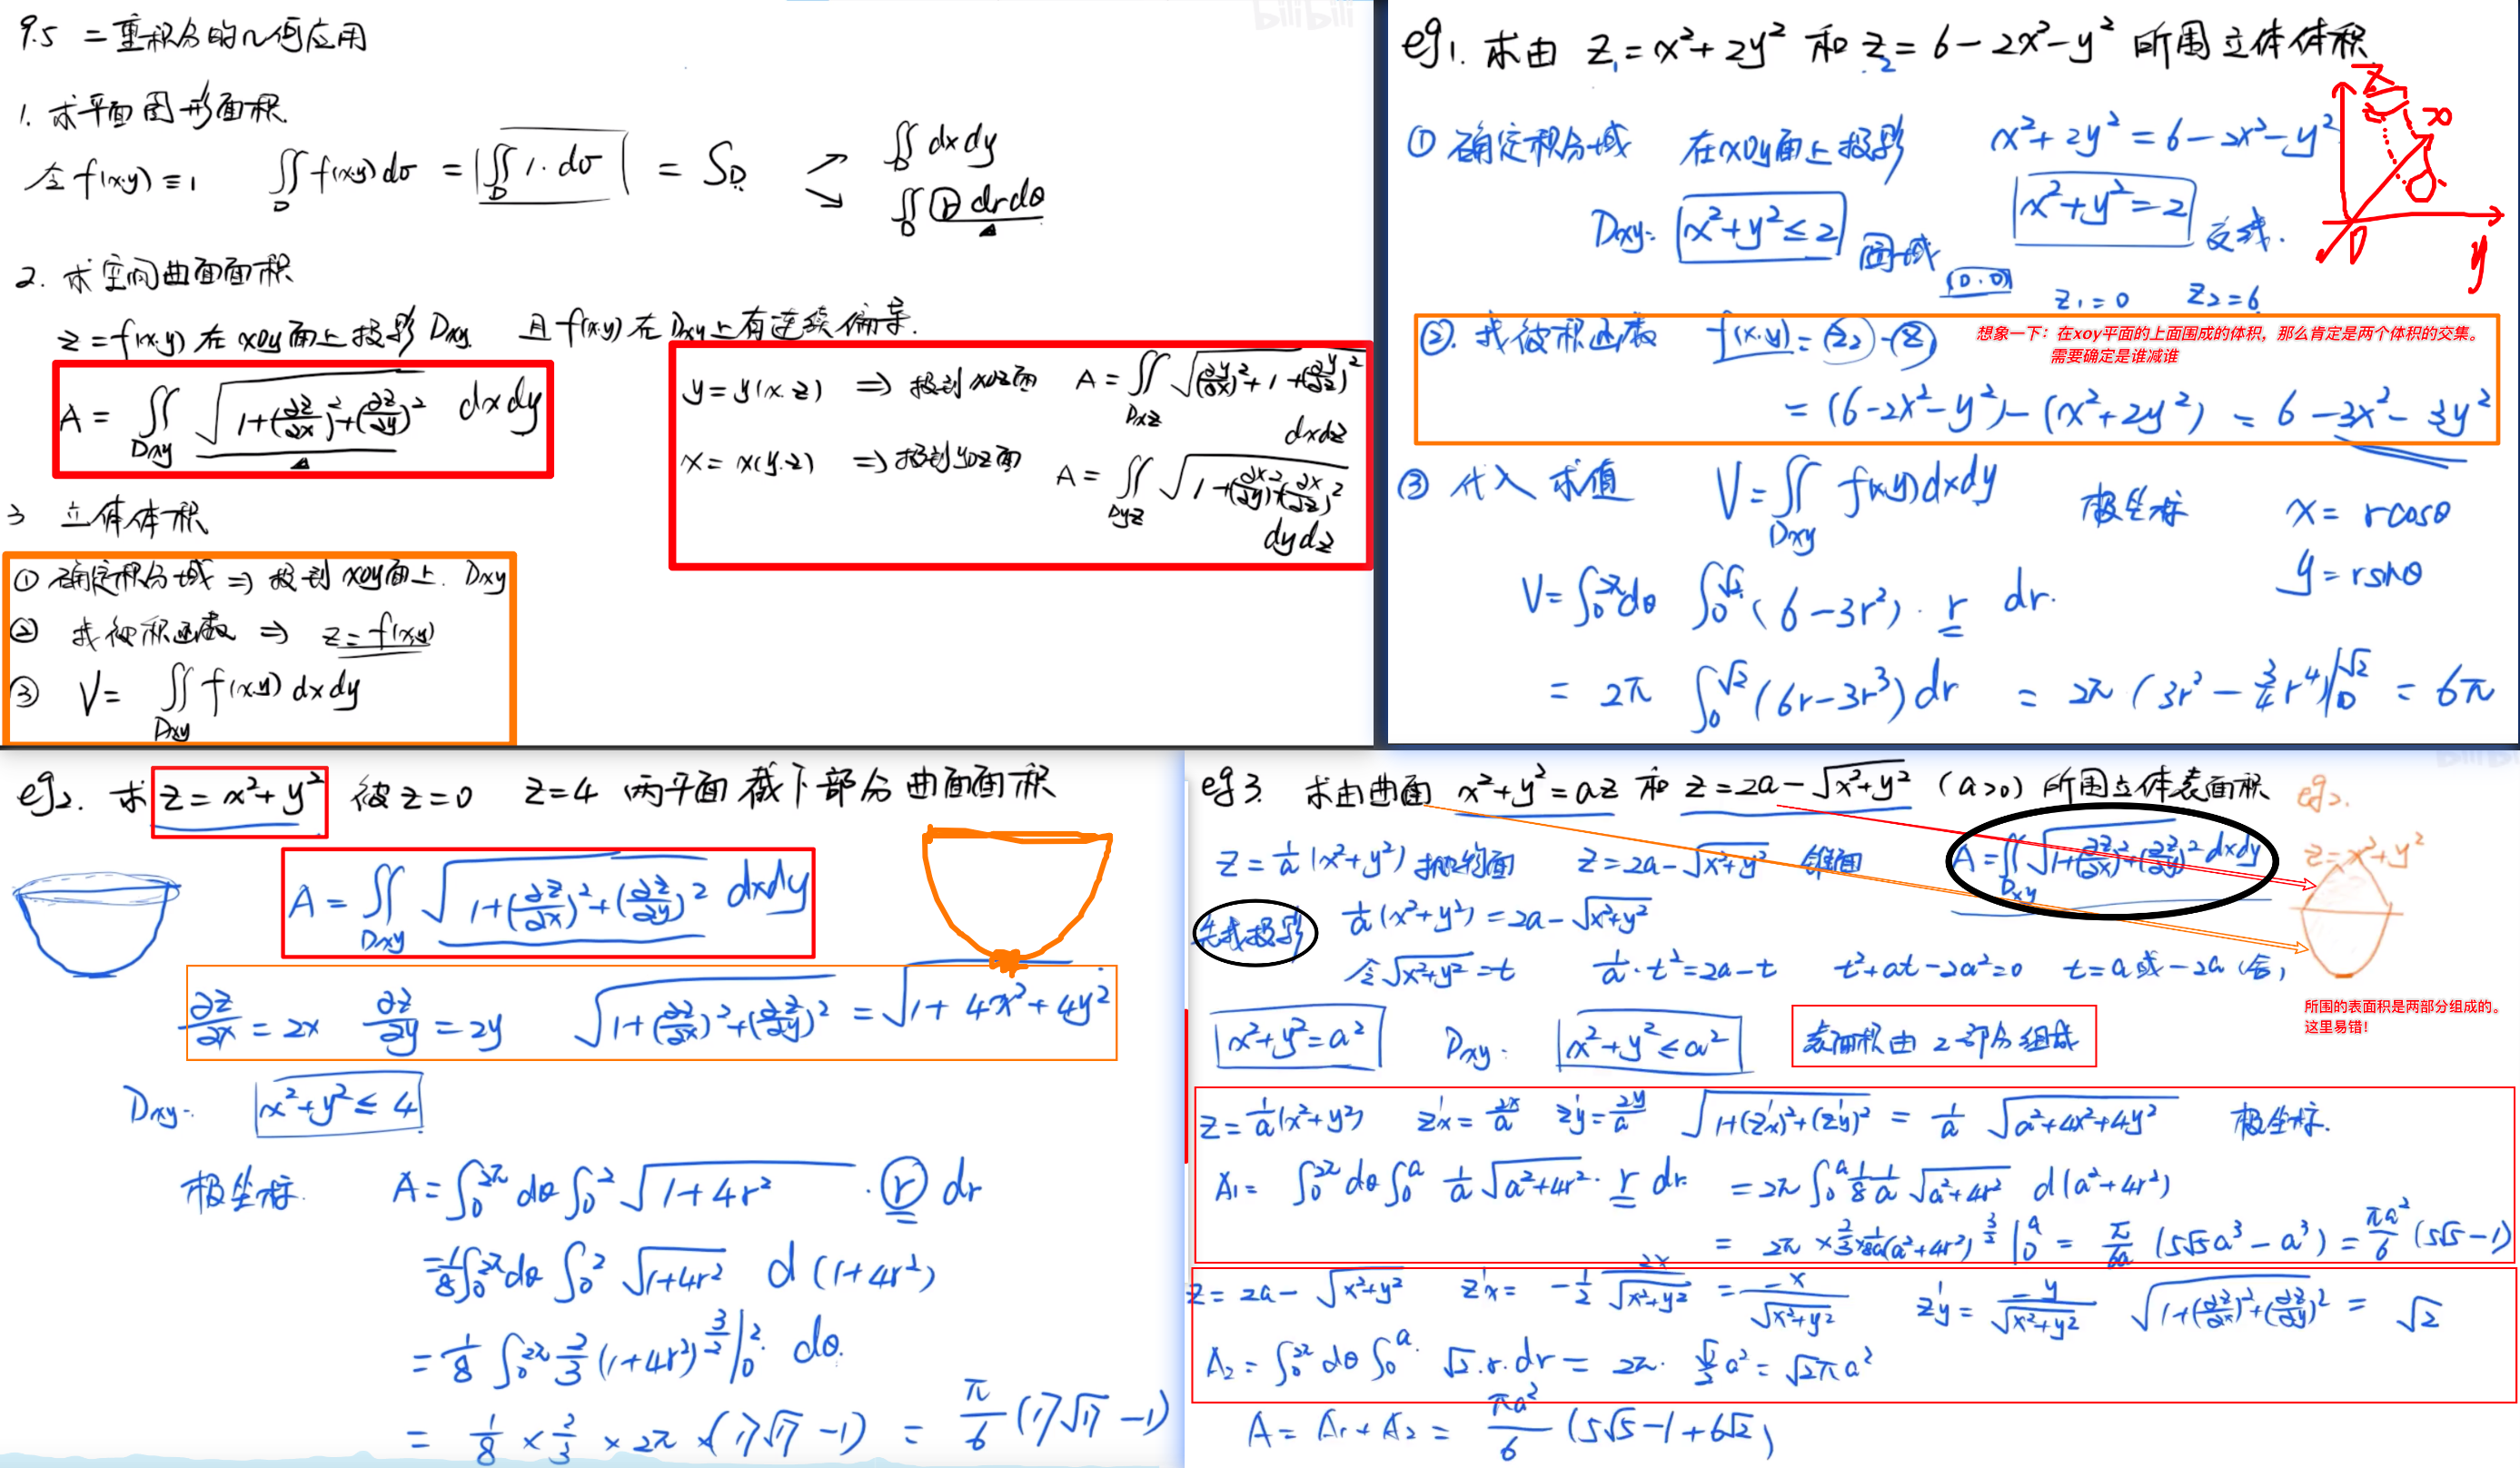 9.5 二重积分的几何应用
1. 求平面图形面积.
令 f(x.y) ≡ 1 ∬_D f(x.y) dσ = |∬_D 1. dσ| = S_D. ↗ ∬_D dxdy
↘ ∬_D r drdθ
2. 求空间曲面面积
z = f(x.y) 在 xoy面上投影 Dxy. 且 f(x.y) 在 Dxy上有连续偏导.
A = ∬_Dxy √(1+(∂z/∂x)²+(∂z/∂y)²) dxdy
y = y(x.z) ⇒ 投到 xoz面 A = ∬_Dxz √((∂y/∂x)²+1+(∂y/∂z)²)
dxdz
x = x(y.z) ⇒ 投到 yoz面 A = ∬_Dyz √(1+(∂x/∂y)²+(∂x/∂z)²)
dydz
3 立体体积
① 确定积分域 ⇒ 投到 xoy面上. Dxy
② 找被积函数 ⇒ z = f(x,y)
③ V = ∬_Dxy f(x.y) dxdy
bilibili
eg1. 求由 z₁ = x²+2y² 和 z₂ = 6-2x²-y² 所围立体体积.
① 确定积分域 在xoy面上投影 x²+2y² = 6-2x²-y²
Dxy: x²+y² ≤ 2 圆域 x²+y² = 2 交线.
(0.0) z₁ = 0 z₂ = 6
z
x
0
y
②. 找被积函数 f(x.y) = (z₂) - (z₁)
想象一下：在xoy平面的上面围成的体积，那么肯定是两个体积的交集。
需要确定是谁减谁
= (6-2x²-y²) - (x²+2y²) = 6-3x²-3y²
③ 代入求值 V = ∬_Dxy f(x,y)dxdy 极坐标 x = rcosθ
y = rsinθ
V = ∫₀^2π dθ ∫₀^√2 (6-3r²) · r dr.
= 2π ∫₀^√2 (6r-3r³) dr = 2π (3r² - 3/4 r⁴)|₀^√2 = 6π
eg2. 求 z = x²+y² 被 z=0 z=4 两平面截下部分曲面面积
A = ∬_Dxy √(1+(∂z/∂x)²+(∂z/∂y)²) dxdy
∂z/∂x = 2x ∂z/∂y = 2y √(1+(∂z/∂x)²+(∂z/∂y)²) = √(1+4x²+4y²)
Dxy. x²+y² ≤ 4
极坐标. A = ∫₀^2π dθ ∫₀² √(1+4r²) · r dr
= 1/8 ∫₀^2π dθ ∫₀² √(1+4r²) d(1+4r²)
= 1/8 ∫₀^2π 2/3 (1+4r²)^(3/2)|₀² dθ.
= 1/8 × 2/3 × 2π × (17√17 - 1) = π/6 (17√17 - 1)
eg3. 求由曲面 x²+y² = az 和 z = 2a-√(x²+y²) (a>0) 所围立体表面积
z = 1/a (x²+y²) 抛物面 z = 2a-√(x²+y²) 锥面 A = ∬_Dxy √(1+(∂z/∂x)²+(∂z/∂y)²) dxdy
eg2.
z = x²+y²
先找投影 1/a (x²+y²) = 2a-√(x²+y²)
令 √(x²+y²) = t 1/a · t² = 2a-t t²+at-2a² = 0 t = a 或 -2a (舍)
所围的表面积是两部分组成的。
这里易错！
x²+y² = a² Dxy. x²+y² ≤ a² 表面积由 2 部分组成
z = 1/a (x²+y²) z'x = 2x/a z'y = 2y/a √(1+(z'x)²+(z'y)²) = 1/a √(a²+4x²+4y²) 极坐标.
A₁ = ∫₀^2π dθ ∫₀^a 1/a √(a²+4r²) · r dr. = 2π ∫₀^a 1/8 1/a √(a²+4r²) d(a²+4r²)
= 2π × 2/3 × 1/8a (a²+4r²)^(3/2)|₀^a = π/6a (5√5a³ - a³) = πa²/6 (5√5-1)
z = 2a-√(x²+y²) z'x = -1/2 2x/√(x²+y²) = -x/√(x²+y²) z'y = -y/√(x²+y²) √(1+(∂z/∂x)²+(∂z/∂y)²) = √2
A₂ = ∫₀^2π dθ ∫₀^a √2 · r · dr = 2π · √2/2 a² = √2πa²
A = A₁ + A₂ = πa²/6 (5√5-1+6√2)